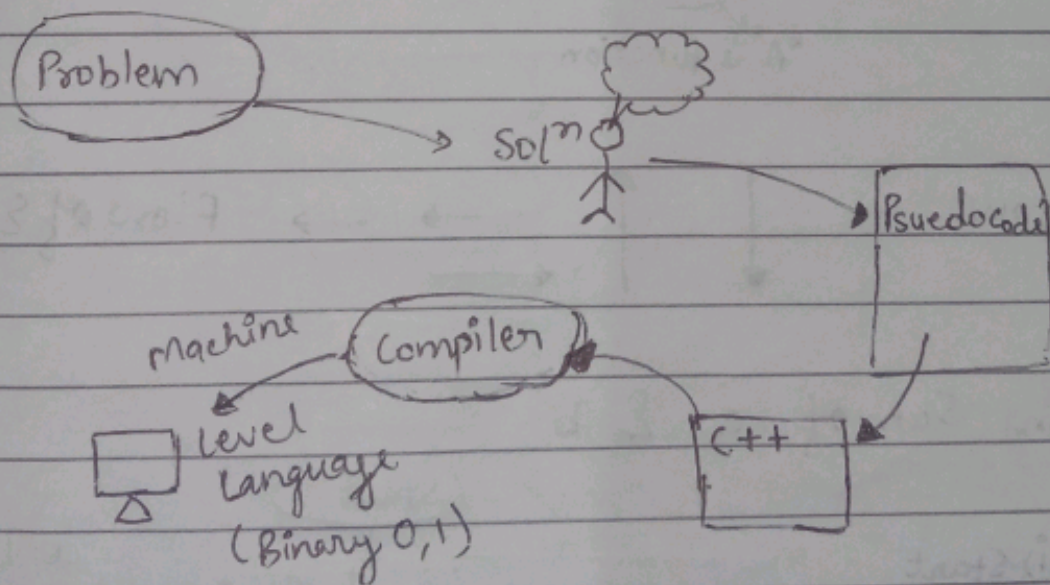 Problem
Solⁿ
Psuedocode
C++
Compiler
Machine
Level
Language
(Binary 0,1)